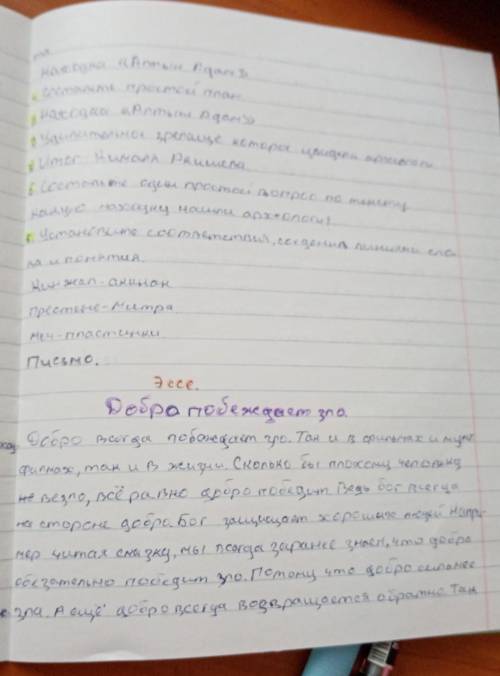 находка «Алтын Адам»
составьте простой план
Находка «Алтын Адам»
Удивительное зрелище которое увидели археологи
Итог Кималя Акишева
Составьте один простой вопрос по тексту
какую находку нашли археологи?
Установите соответствия, соединив линиями сло-
ва и понятия.
Кинжал-акинак
престень-Митра
меч-пластинки
Письмо.
Эссе.
Добро побеждает зло.
Добро всегда побеждает зло. Так и в фильмах и муль
фильмах, так и в жизни. Сколько бы плохому человеку
не везло, всё равно добро победит. Ведь бог всегда
на стороне добра. Бог защищает хороших людей. Напри
мер читая сказку, мы всегда заранее знаем, что добро
обезательно победит зло. Потому что добро сильнее
зла. А ещё добро всегда возвращается обратно. Так